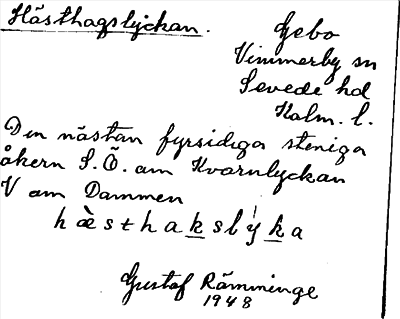 Hästhagslyckan.
Gebo
Vimmerby sn
Sevede hd
Kalm. l.
Den nästan fyrsidiga steniga
åkern S.Ö. om Kvarnlyckan
V om Dammen
hæ̀sthakslýka
Gustaf Rämminge
1948